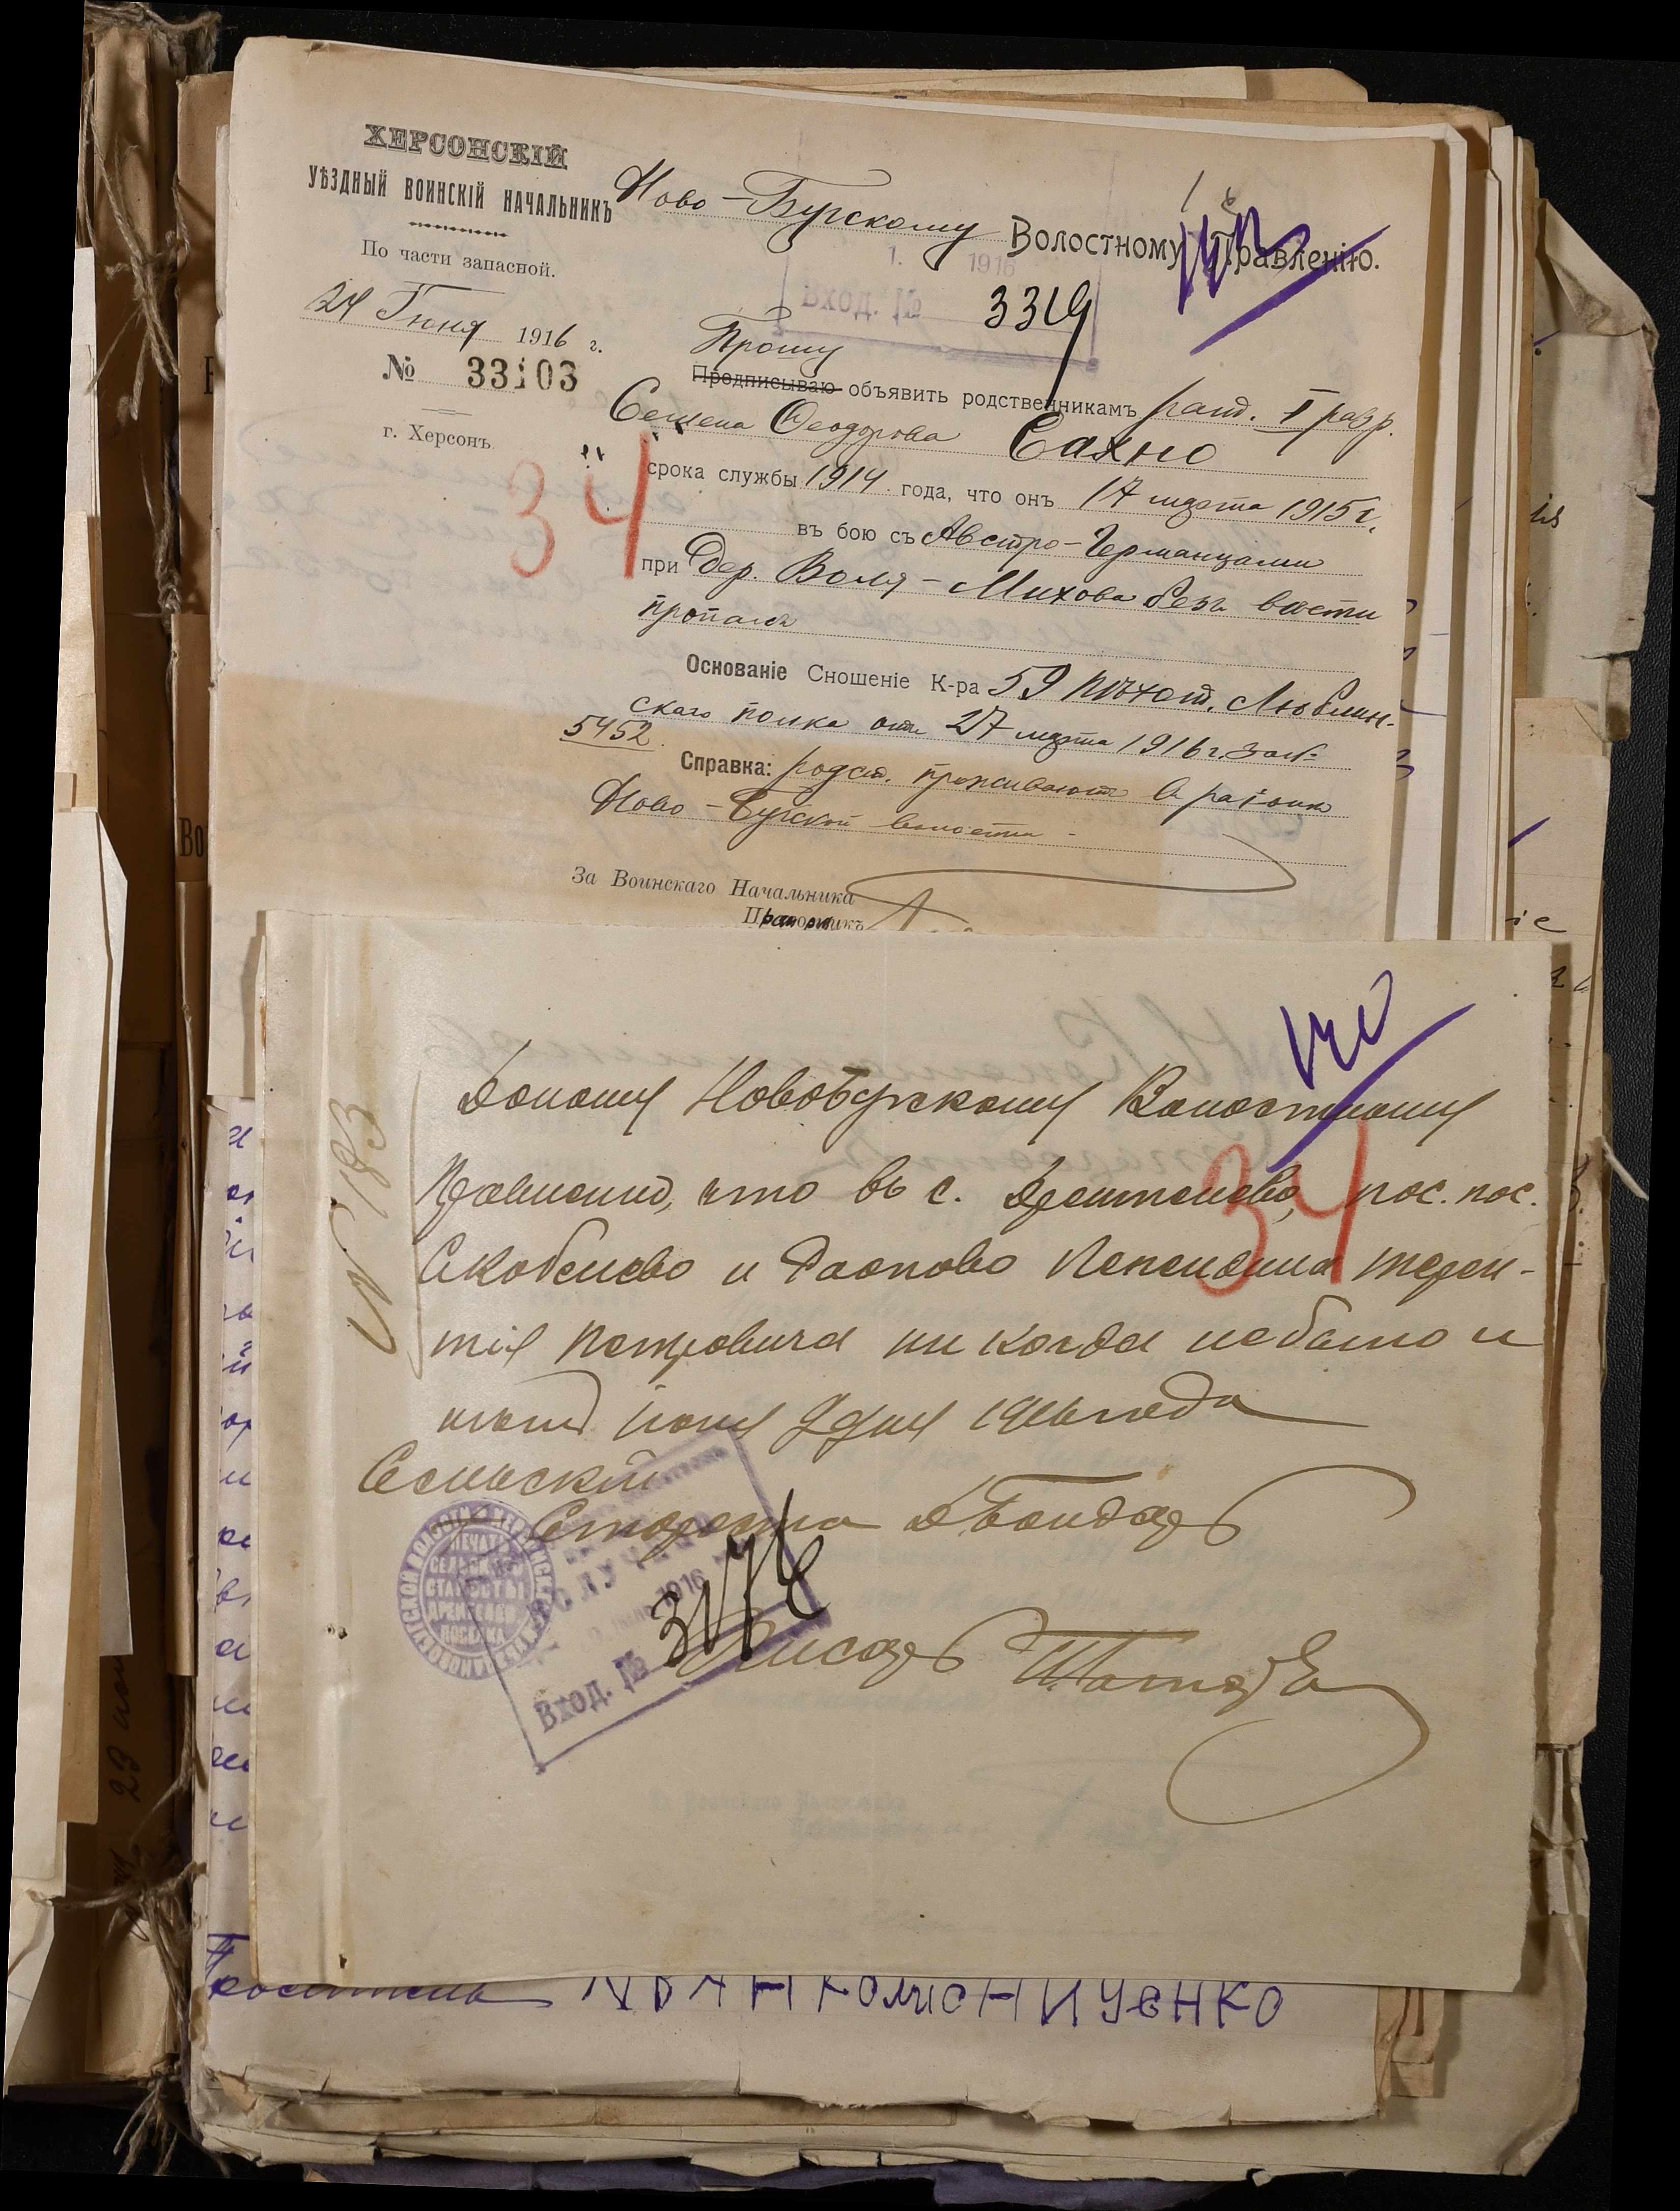 ХЕРСОНСКІЙ
УѢЗДНЫЙ ВОИНСКІЙ НАЧАЛЬНИКЪ
По части запасной.
24 Іюня 1916 г.
№ 33103
г. Херсонъ.
Ново-Бугскому Волостному Правленію.
1. 1916
Вход. № 3319
Прошу
Предписываю объявить родственникамъ рат. I разр.
Семена Феодорова Сахно
34
срока службы 1914 года, что онъ 17 марта 1915 г.
въ бою съ Австро-Германцами
при дер. Воля-Михова безъ вѣсти
пропалъ
Основаніе Сношеніе К-ра 59 пѣхот. Люблин-
скаго полка отъ 27 марта 1916 г. за №
5452
Справка: родст. проживаютъ в районѣ
Ново-Бугской волости
За Воинскаго Начальника
Прапорщикъ
№ 183
Доношу Новобугскому Волостному
34
Правленію, что въ с. пос. пос.
Скобелево и терен-
тія Петровича ни когда небыло и
нетъ іюня 9 дня 1916 года
Сельскій
Староста Бондарь
1916
Вход. №
Писарь
Проситель